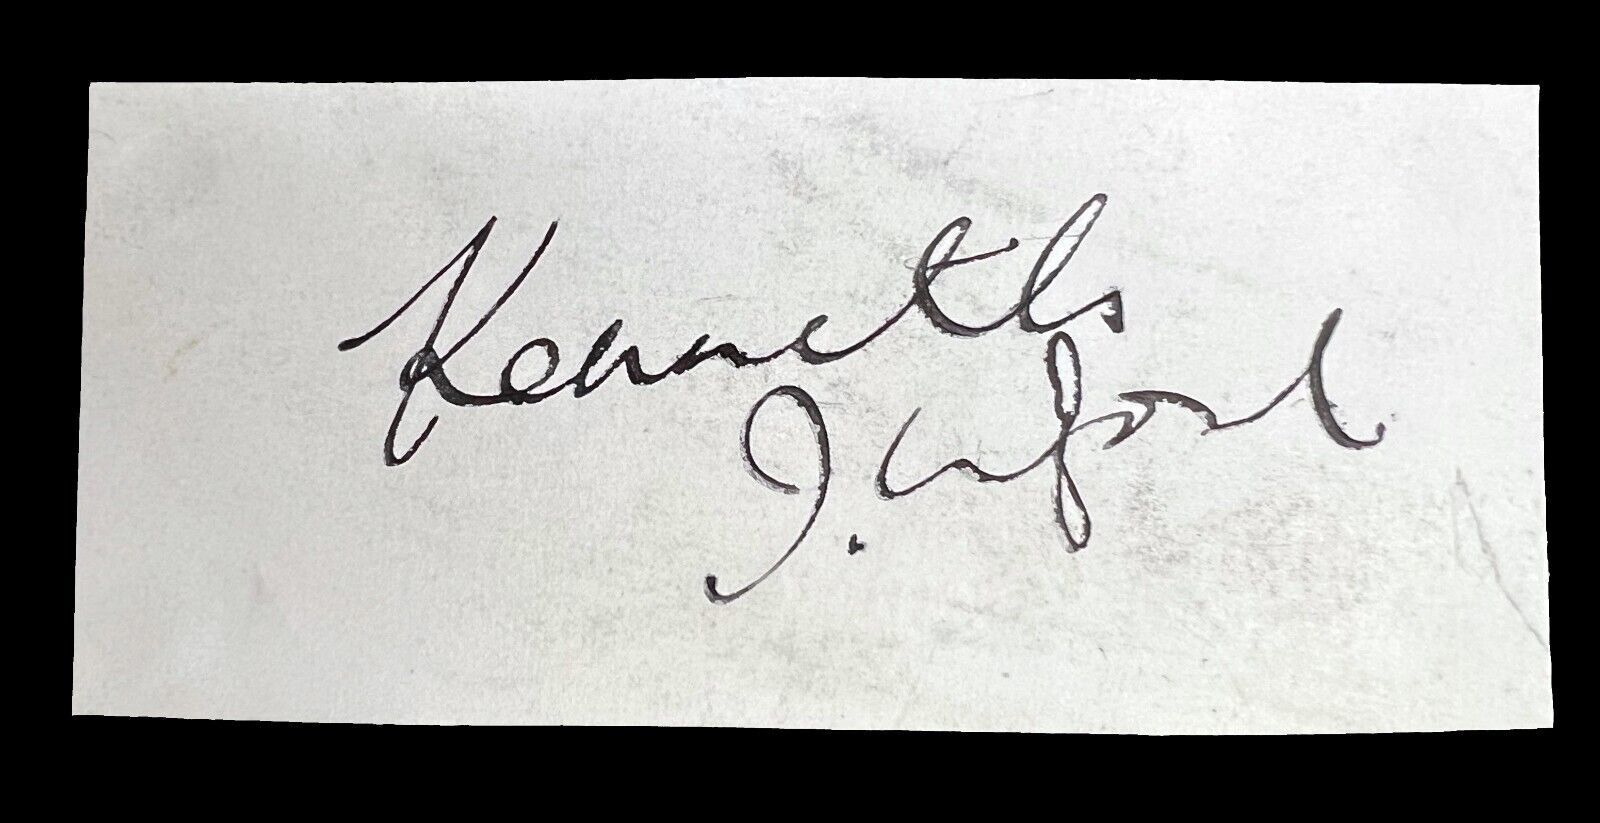 Kenneth
J. Alford